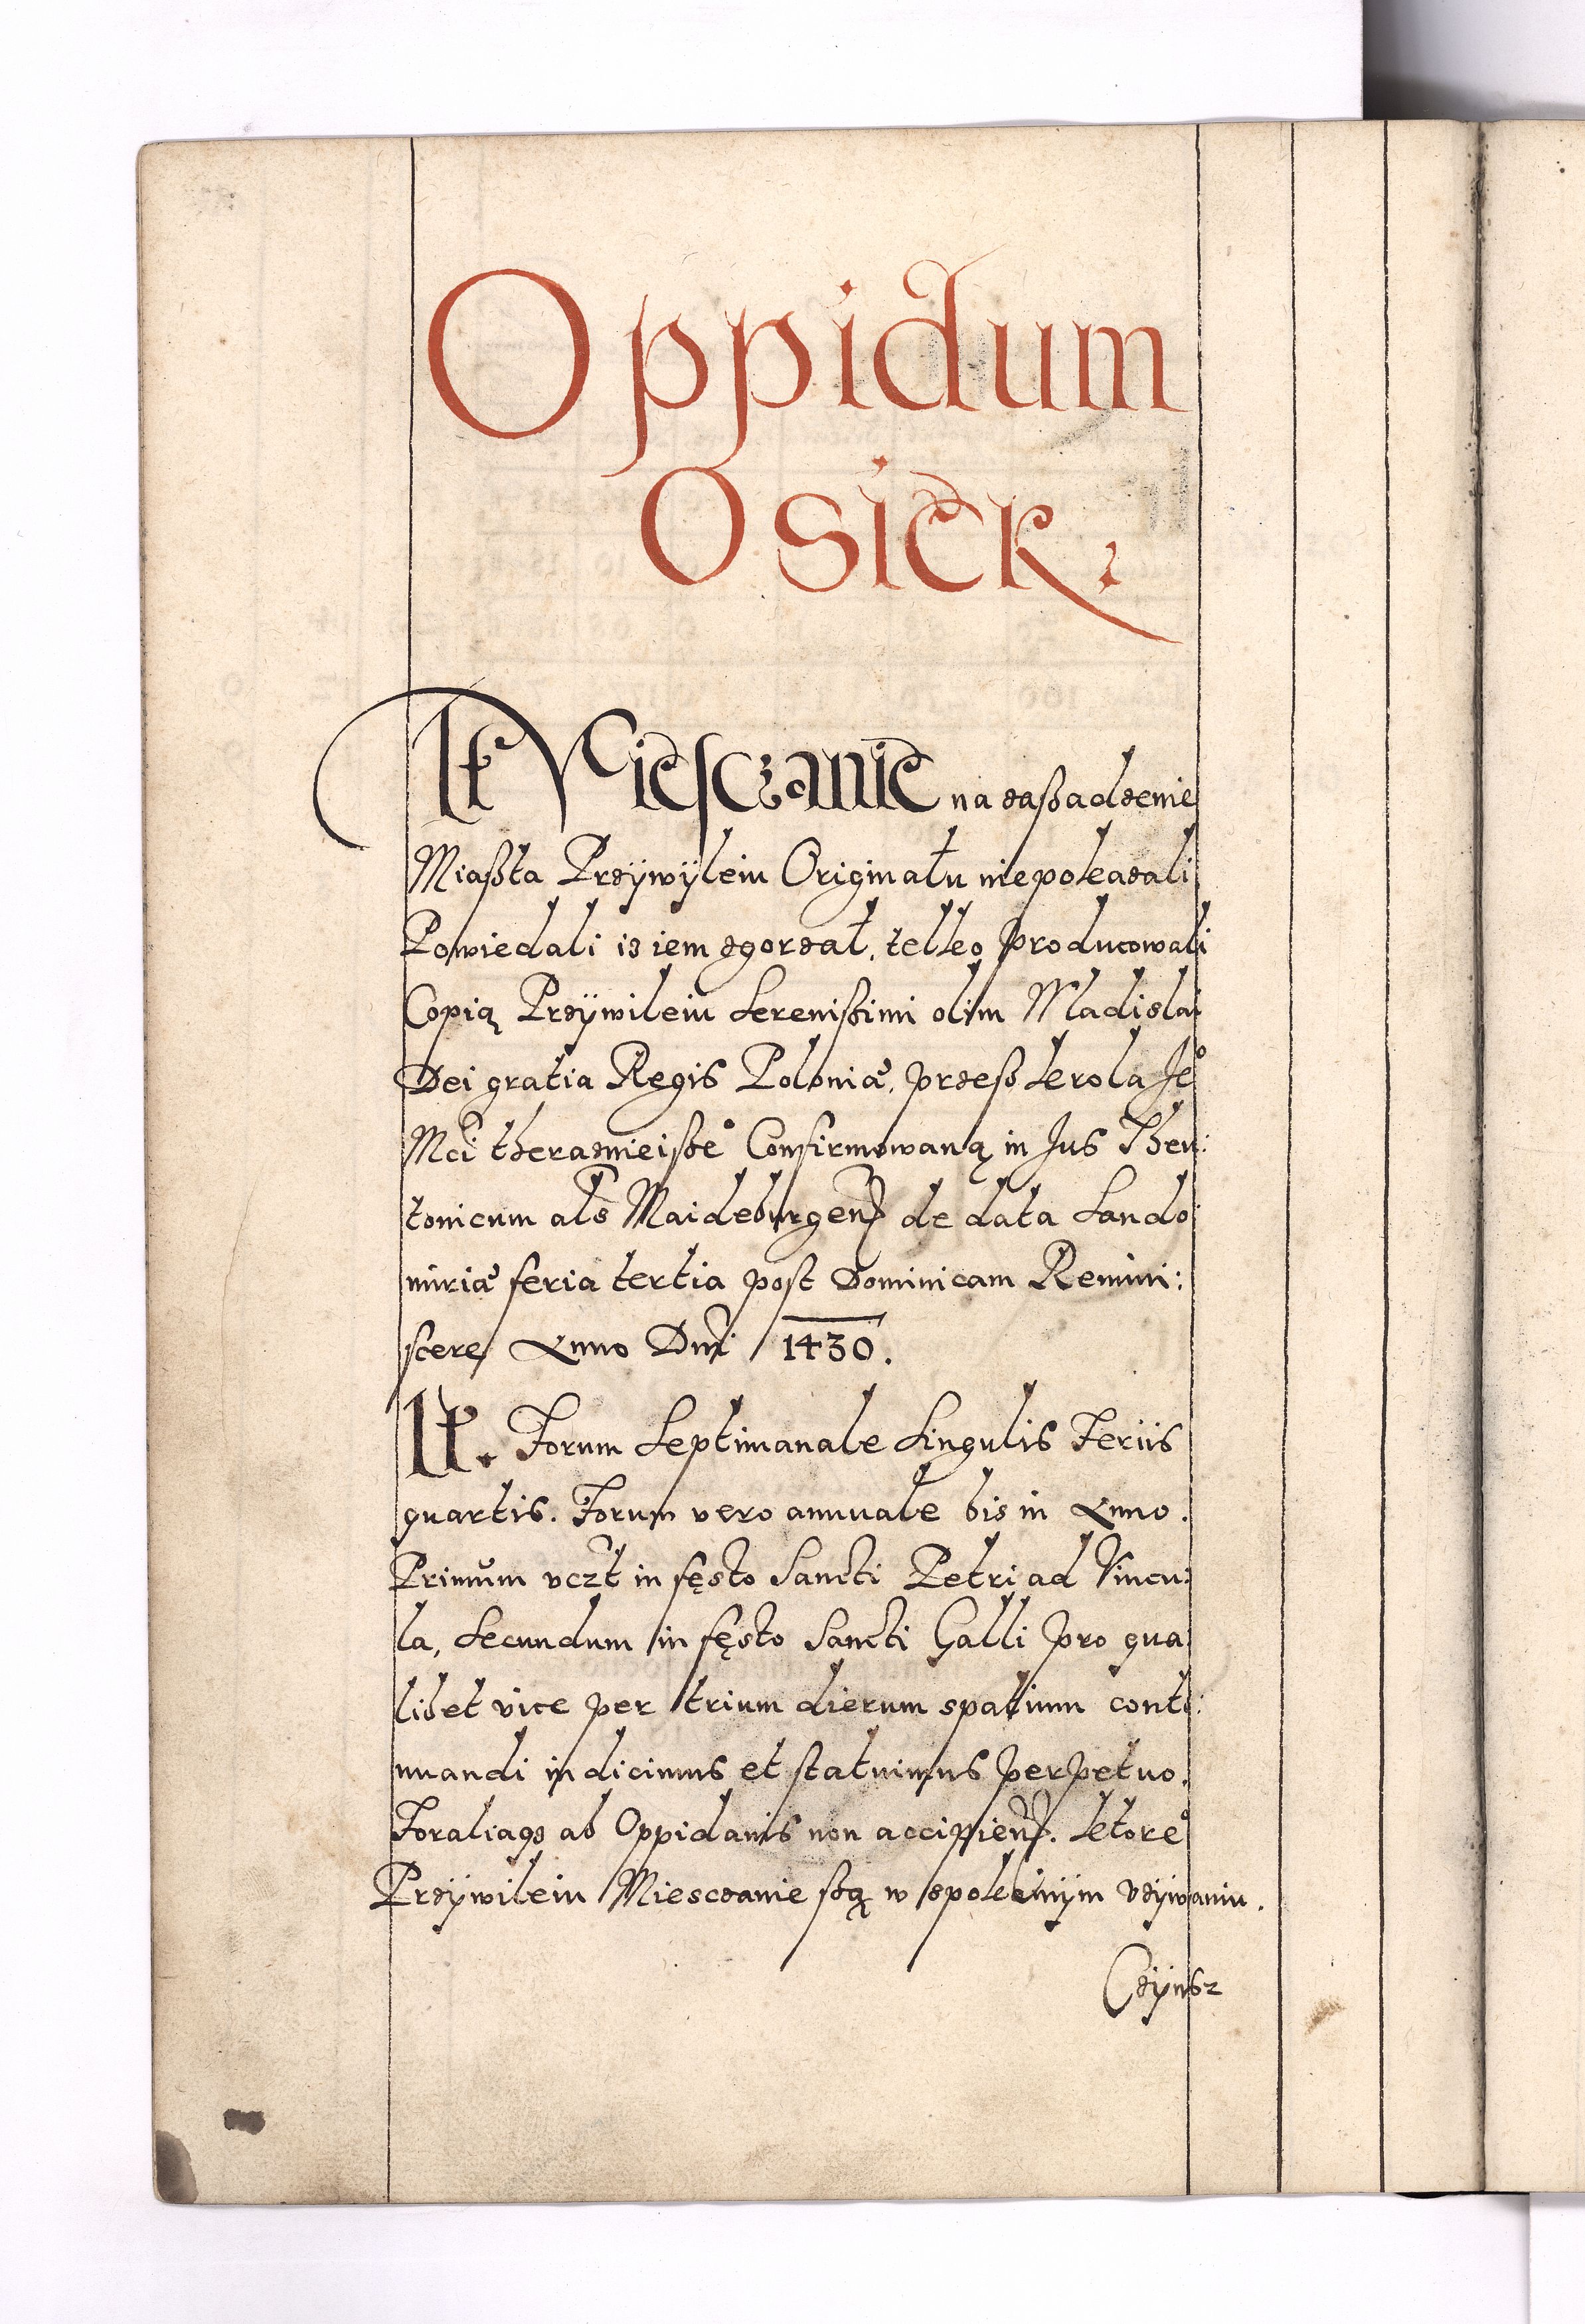 Oppidum
Osiek.
It Miesczanie na zaßadzenie
Miaßta Przÿwÿleiu Originału niepokazali
Powiedali iz iem zgorzał, telko producowali
Copią Przÿwileiu Sereniſsimi olim Vladislai
Dei gratia Regis Poloniæ, przeß Krola Je͛
Mći theraznieiſze͛ Confirmowaną in Jus Theu:
tonicum als Maideburgen de data Sando
miriæ feria tertia post Dominicam Remini:
scere Anno Dni 1430.
It. Forum Septimanale Singulis Feriis
quartis. Forum vero annuale bis in Anno.
Primum vczt in fęsto Sancti Petri ad Vincu:
la, Secundum in fęsto Sancti Galli pro qua
libet vice per trium dierum spatium conti:
nuandi indicimus et statuimus perpetuo.
Foraliaqꝫ ab Oppidanis non accipien. Ktore͛
Przÿwileiu Miesczanie ſzą w spokoinÿm vzÿwaniu.
Czÿnsz